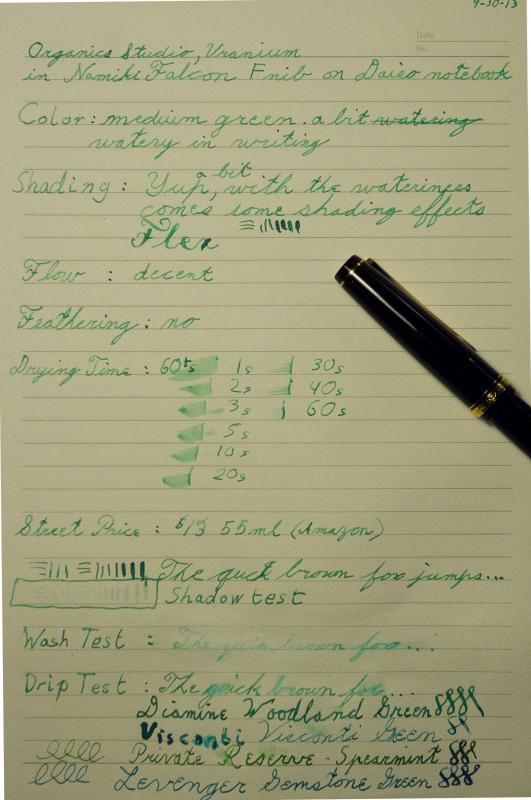 9-30-13
Date
No.
Organics Studio, Uranium
in Namiki Falcon F nib on Daiso notebook
Color: medium green. a bit watering
watery in writing
Shading: Yup, a bit, with the wateriness
comes some shading effects
Flex
Flow : decent
Feathering: no
Drying Time : 60+s 1s 30s
2s 40s
3s 60s
5s
10s
20s
Street Price : $13 55ml (Amazon)
The quick brown fox jumps...
Shadow test
Wash Test : The quick brown fox...
Drip Test : The quick brown fox....
Diamine Woodland Green
Visconti Visconti Green
Private Reserve - Spearmint
Levenger Gemstone Green